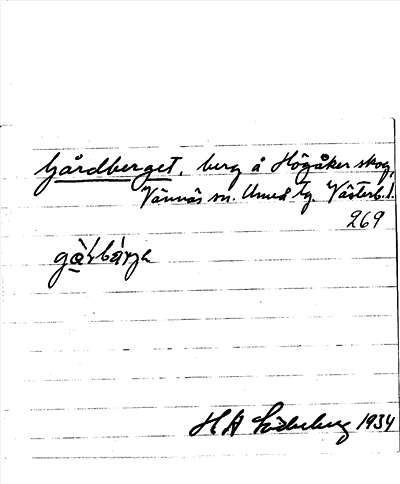 Gårdberget, berg å Högåker skog,
Vännäs sn. Umeå tg. Västerb. l.
269
gàɽbárjə
H A Söderberg 1934